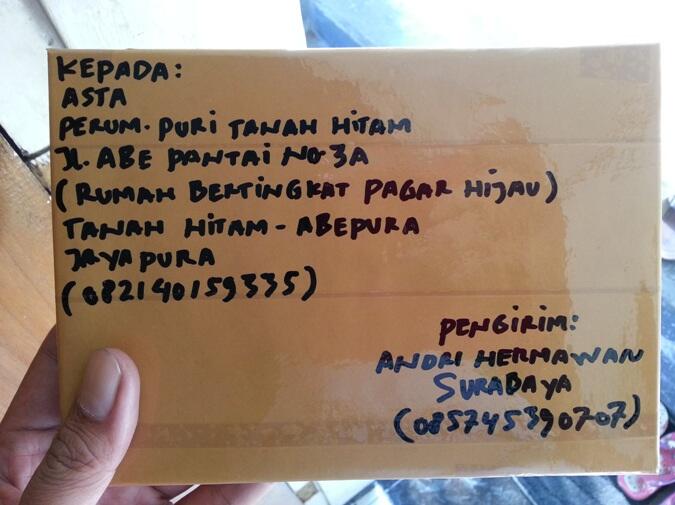 KEPADA:
ASTA
PERUM. PURI TANAH HITAM
Jl. ABE PANTAI NO 3A
(RUMAH BERTINGKAT PAGAR HIJAU)
TANAH HITAM - ABEPURA
JAYAPURA
(082140159335)
PENGIRIM:
ANDRI HERMAWAN
SURABAYA
(085745390707)